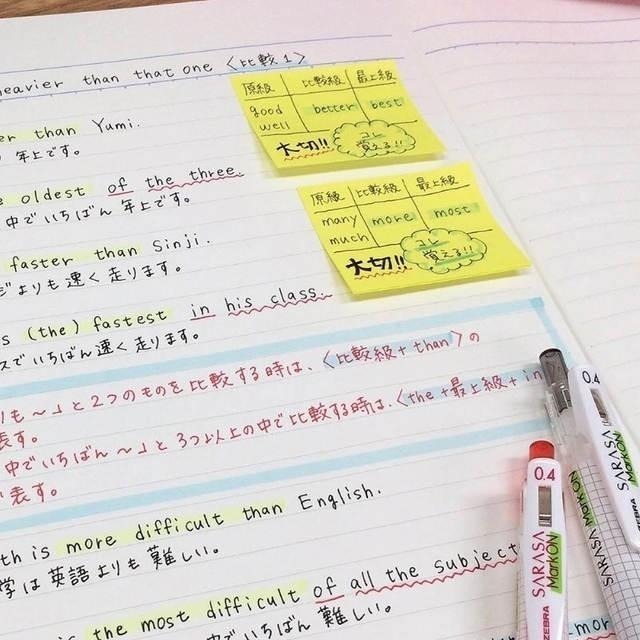 heavier than that one 〈比較1〉
er than Yumi.
年上です。
e oldest of the three.
中でいちばん年上です。
faster than Sinji.
ジよりも速く走ります。
s (the) fastest in his class.
スでいちばん速く走ります。
りも〜」と2つのものを比較する時は、〈比較級+than〉の
表す。
中でいちばん〜」と3つ以上の中で比較する時は、〈the+最上級+in
表す。
th is more difficult than English.
学は英語よりも難しい。
is the most difficult of all the subject
中でいちばん難しい。
mor
原級 比較級 最上級
good better best
well
大切!! コレ
覚える!!
原級 比較級 最上級
many more most
much
大切!! コレ
覚える!!
0.4
SARASA
MarkON
ZEBRA
0.4
SARASA
MarkON
SARASA
MarkON